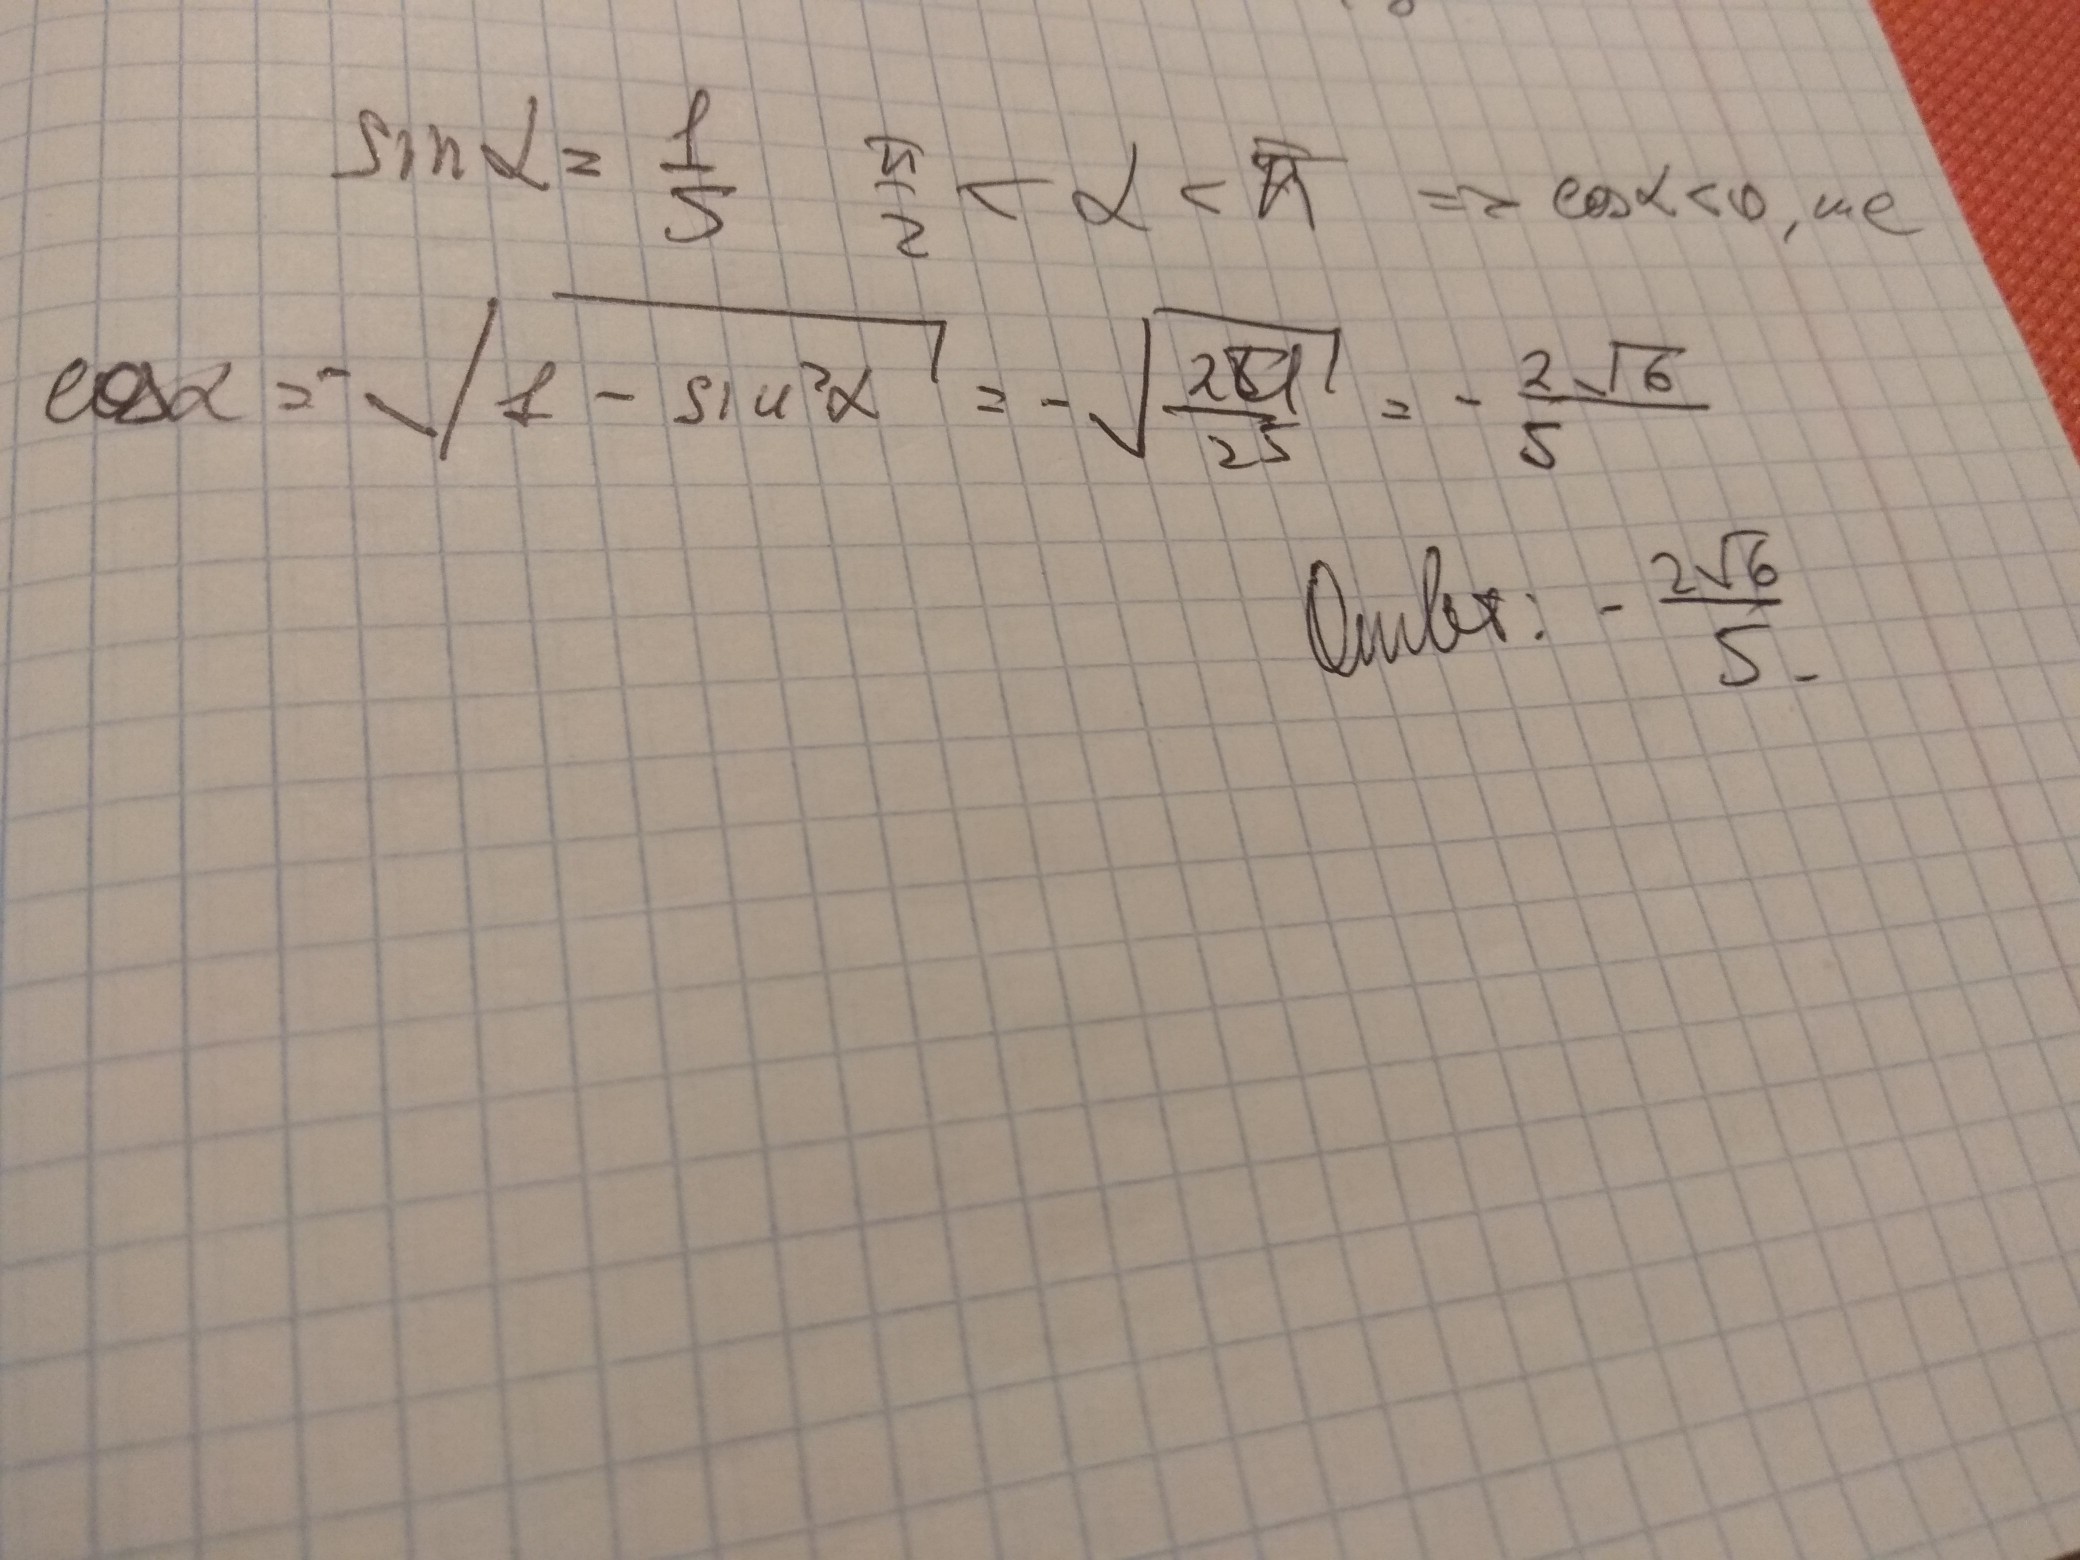 sin α = 1/5 π/2 < α < π => cos α < 0, т.е
cos α = -√(1 - sin²α) = -√(24/25) = - 2√6/5
Ответ: - 2√6/5.